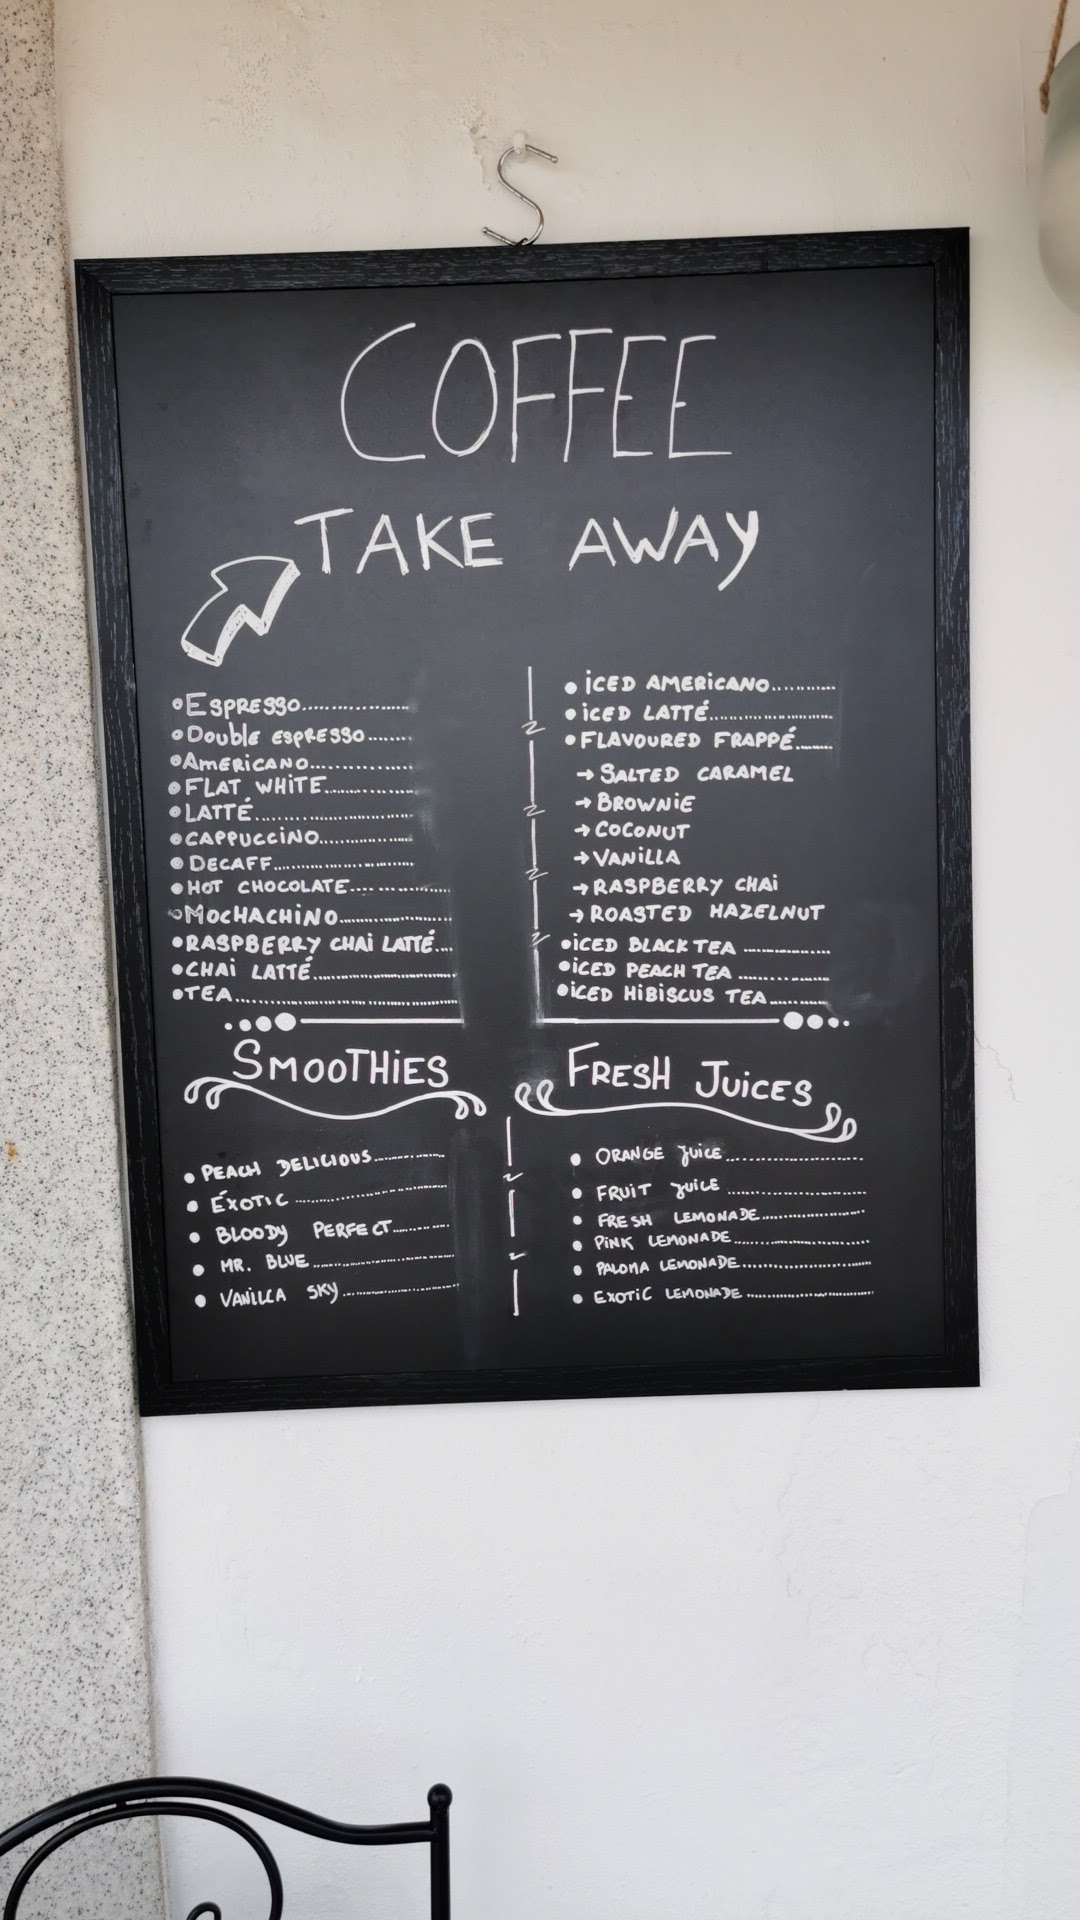 COFFEE
TAKE AWAY
• ESPRESSO..................
• DOUBLE ESPRESSO.......
• AMERICANO................
• FLAT WHITE...............
• LATTÉ........................
• CAPPUCCINO...............
• DECAFF.....................
• HOT CHOCOLATE.... ............
• MOCHACHINO....................
• RASPBERRY CHAI LATTÉ....
• CHAI LATTÉ.........................
• TEA.......................................
• ICED AMERICANO............
• ICED LATTÉ......................
• FLAVOURED FRAPPÉ.......
→ SALTED CARAMEL
→ BROWNIE
→ COCONUT
→ VANILLA
→ RASPBERRY CHAI
→ ROASTED HAZELNUT
• ICED BLACK TEA ..............
• ICED PEACH TEA ..............
• ICED HIBISCUS TEA..........
SMOOTHIES
• PEACH DELICIOUS..............
• ÉXOTIC ..........................
• BLOODY PERFECT..........
• MR. BLUE........................
• VANILLA SKY....................
FRESH JUICES
• ORANGE JUICE........................
• FRUIT JUICE ........................
• FRESH LEMONADE..................
• PINK LEMONADE.......................
• PALOMA LEMONADE......................
• EXOTIC LEMONADE ......................